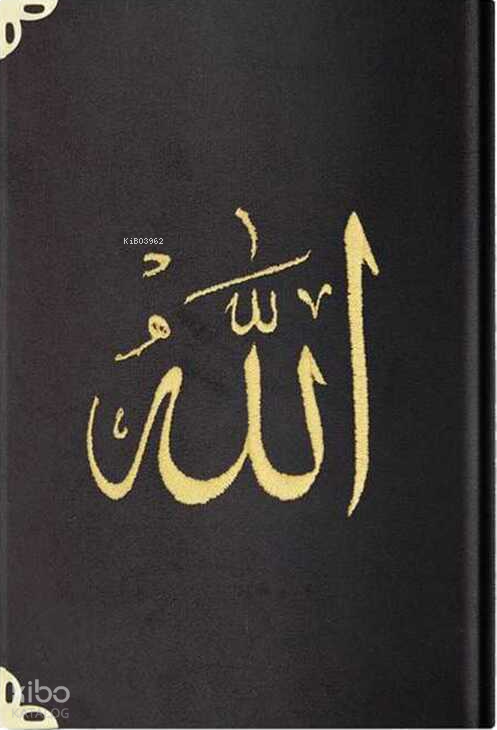 KiB03962
اللّٰهُ
kibo
KATALOG